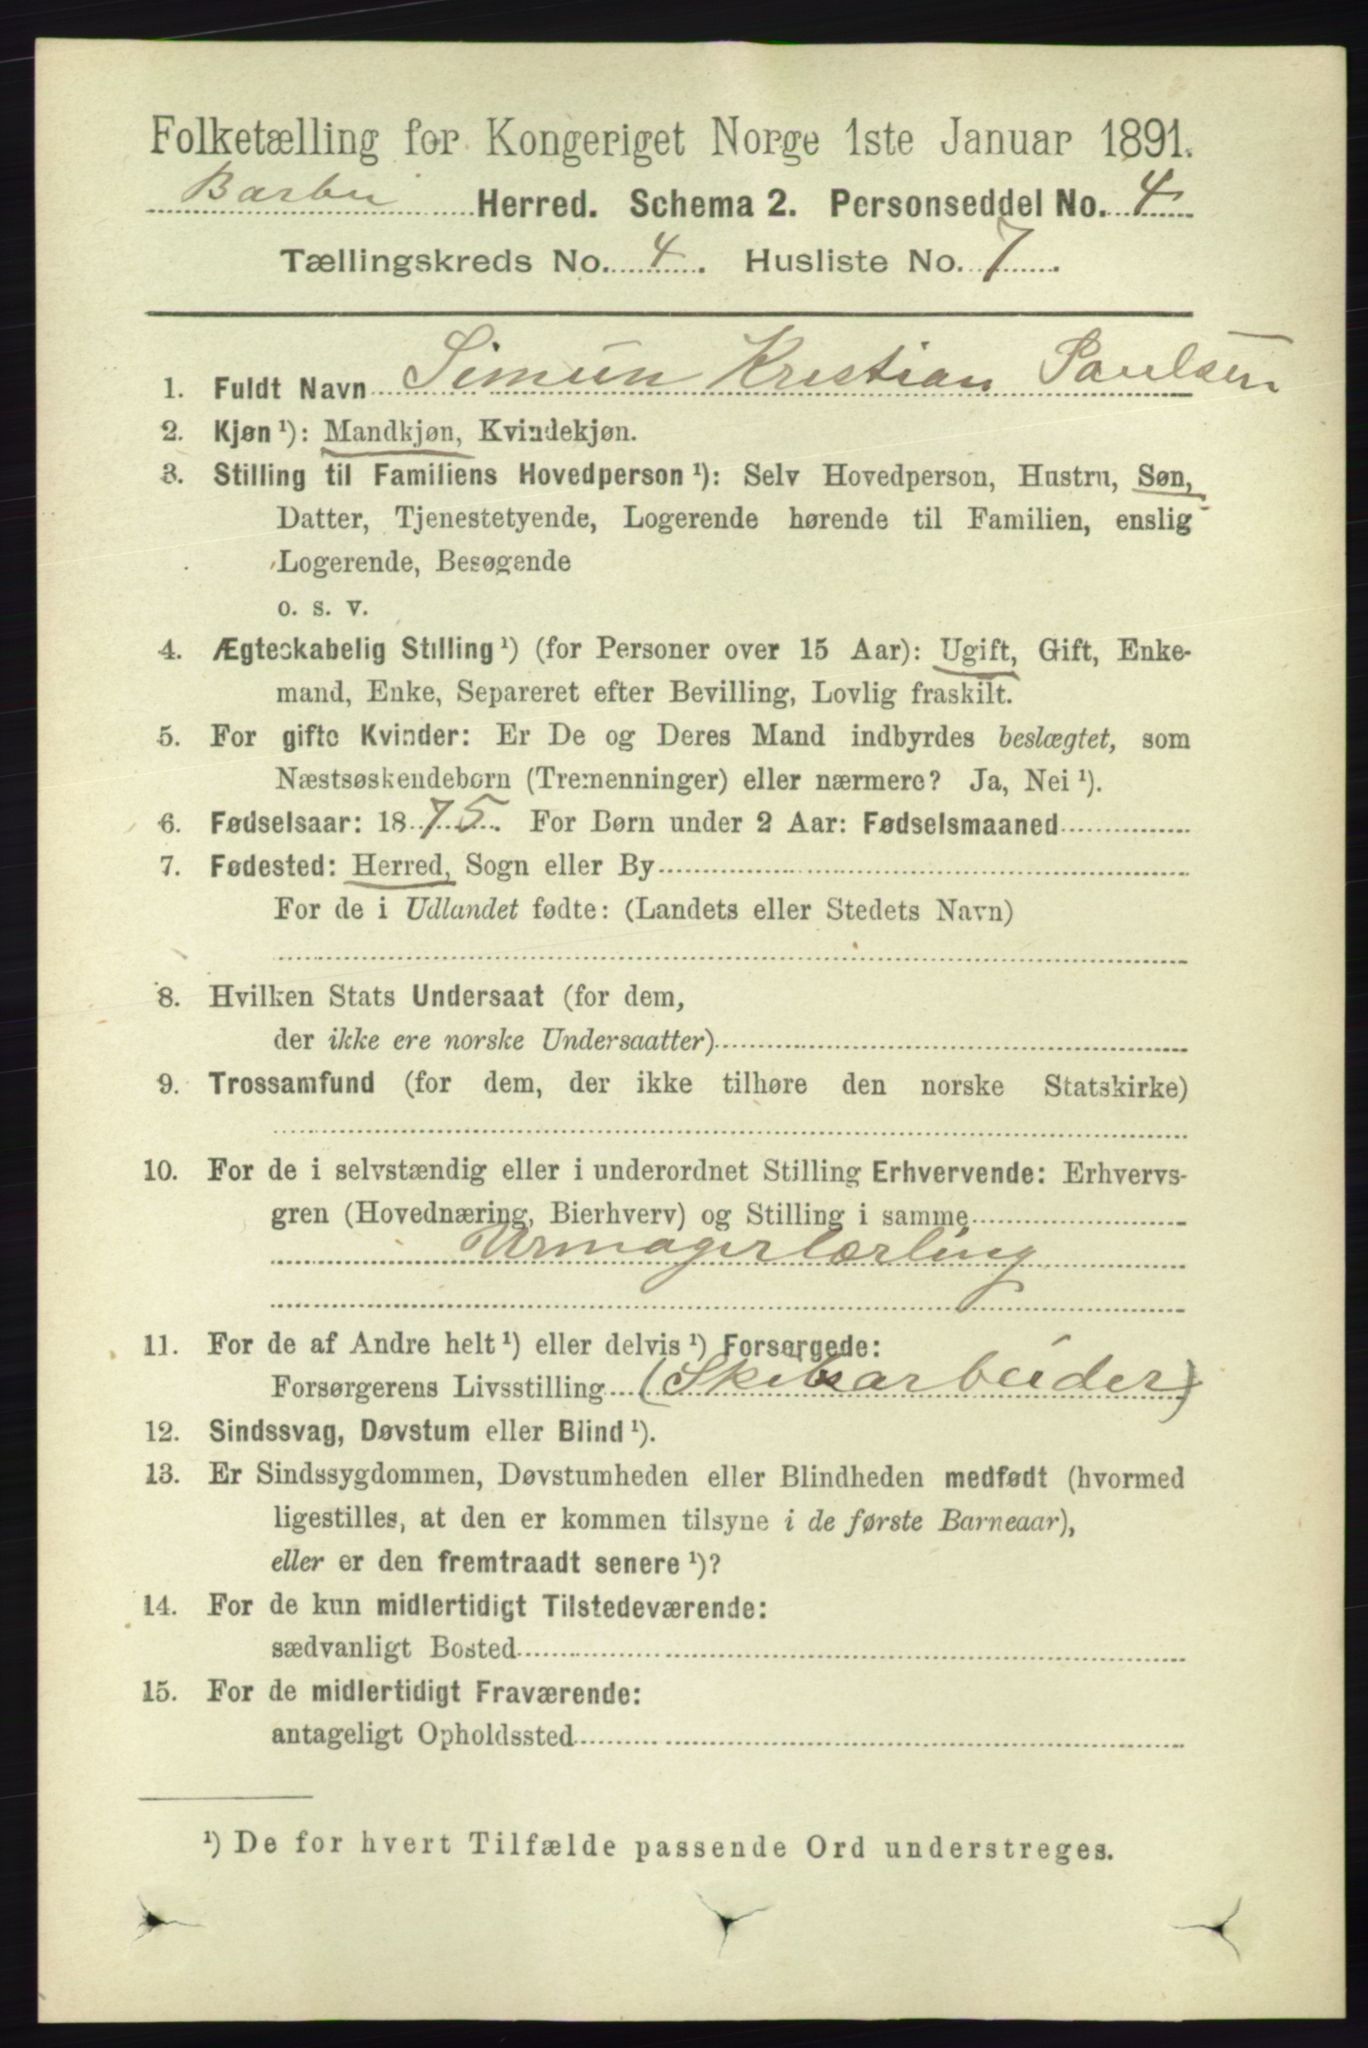 Folketælling for Kongeriget Norge 1ste Januar 1891.
Barbu Herred. Schema 2. Personseddel No. 4
Tællingskreds No. 4. Husliste No. 7
1. Fuldt Navn Simun Kristian Paulsen
2. Kjøn ¹): Mandkjøn, Kvindekjøn.
3. Stilling til Familiens Hovedperson ¹): Selv Hovedperson, Hustru, Søn,
Datter, Tjenestetyende, Logerende hørende til Familien, enslig
Logerende, Besøgende
o. s. v.
4. Ægteskabelig Stilling ¹) (for Personer over 15 Aar): Ugift, Gift, Enke-
mand, Enke, Separeret efter Bevilling, Lovlig fraskilt.
5. For gifte Kvinder: Er De og Deres Mand indbyrdes beslægtet, som
Næstsøskendeborn (Tremenninger) eller nærmere? Ja, Nei ¹).
6. Fødselsaar: 1875. For Børn under 2 Aar: Fødselsmaaned
7. Fødested: Herred, Sogn eller By
For de i Udlandet fødte: (Landets eller Stedets Navn)
8. Hvilken Stats Undersaat (for dem,
der ikke ere norske Undersaatter)
9. Trossamfund (for dem, der ikke tilhøre den norske Statskirke)
10. For de i selvstændig eller i underordnet Stilling Erhvervende: Erhvervs-
gren (Hovednæring, Bierhverv) og Stilling i samme
Urmagerlærling
11. For de af Andre helt ¹) eller delvis ¹) Forsørgede:
Forsørgerens Livsstilling (Skibsarbeider)
12. Sindssvag, Døvstum eller Blind ¹).
13. Er Sindssygdommen, Døvstumheden eller Blindheden medfødt (hvormed
ligestilles, at den er kommen tilsyne i de første Barneaar),
eller er den fremtraadt senere ¹)?
14. For de kun midlertidigt Tilstedeværende:
sædvanligt Bosted
15. For de midlertidigt Fraværende:
antageligt Opholdssted
¹) De for hvert Tilfælde passende Ord understreges.